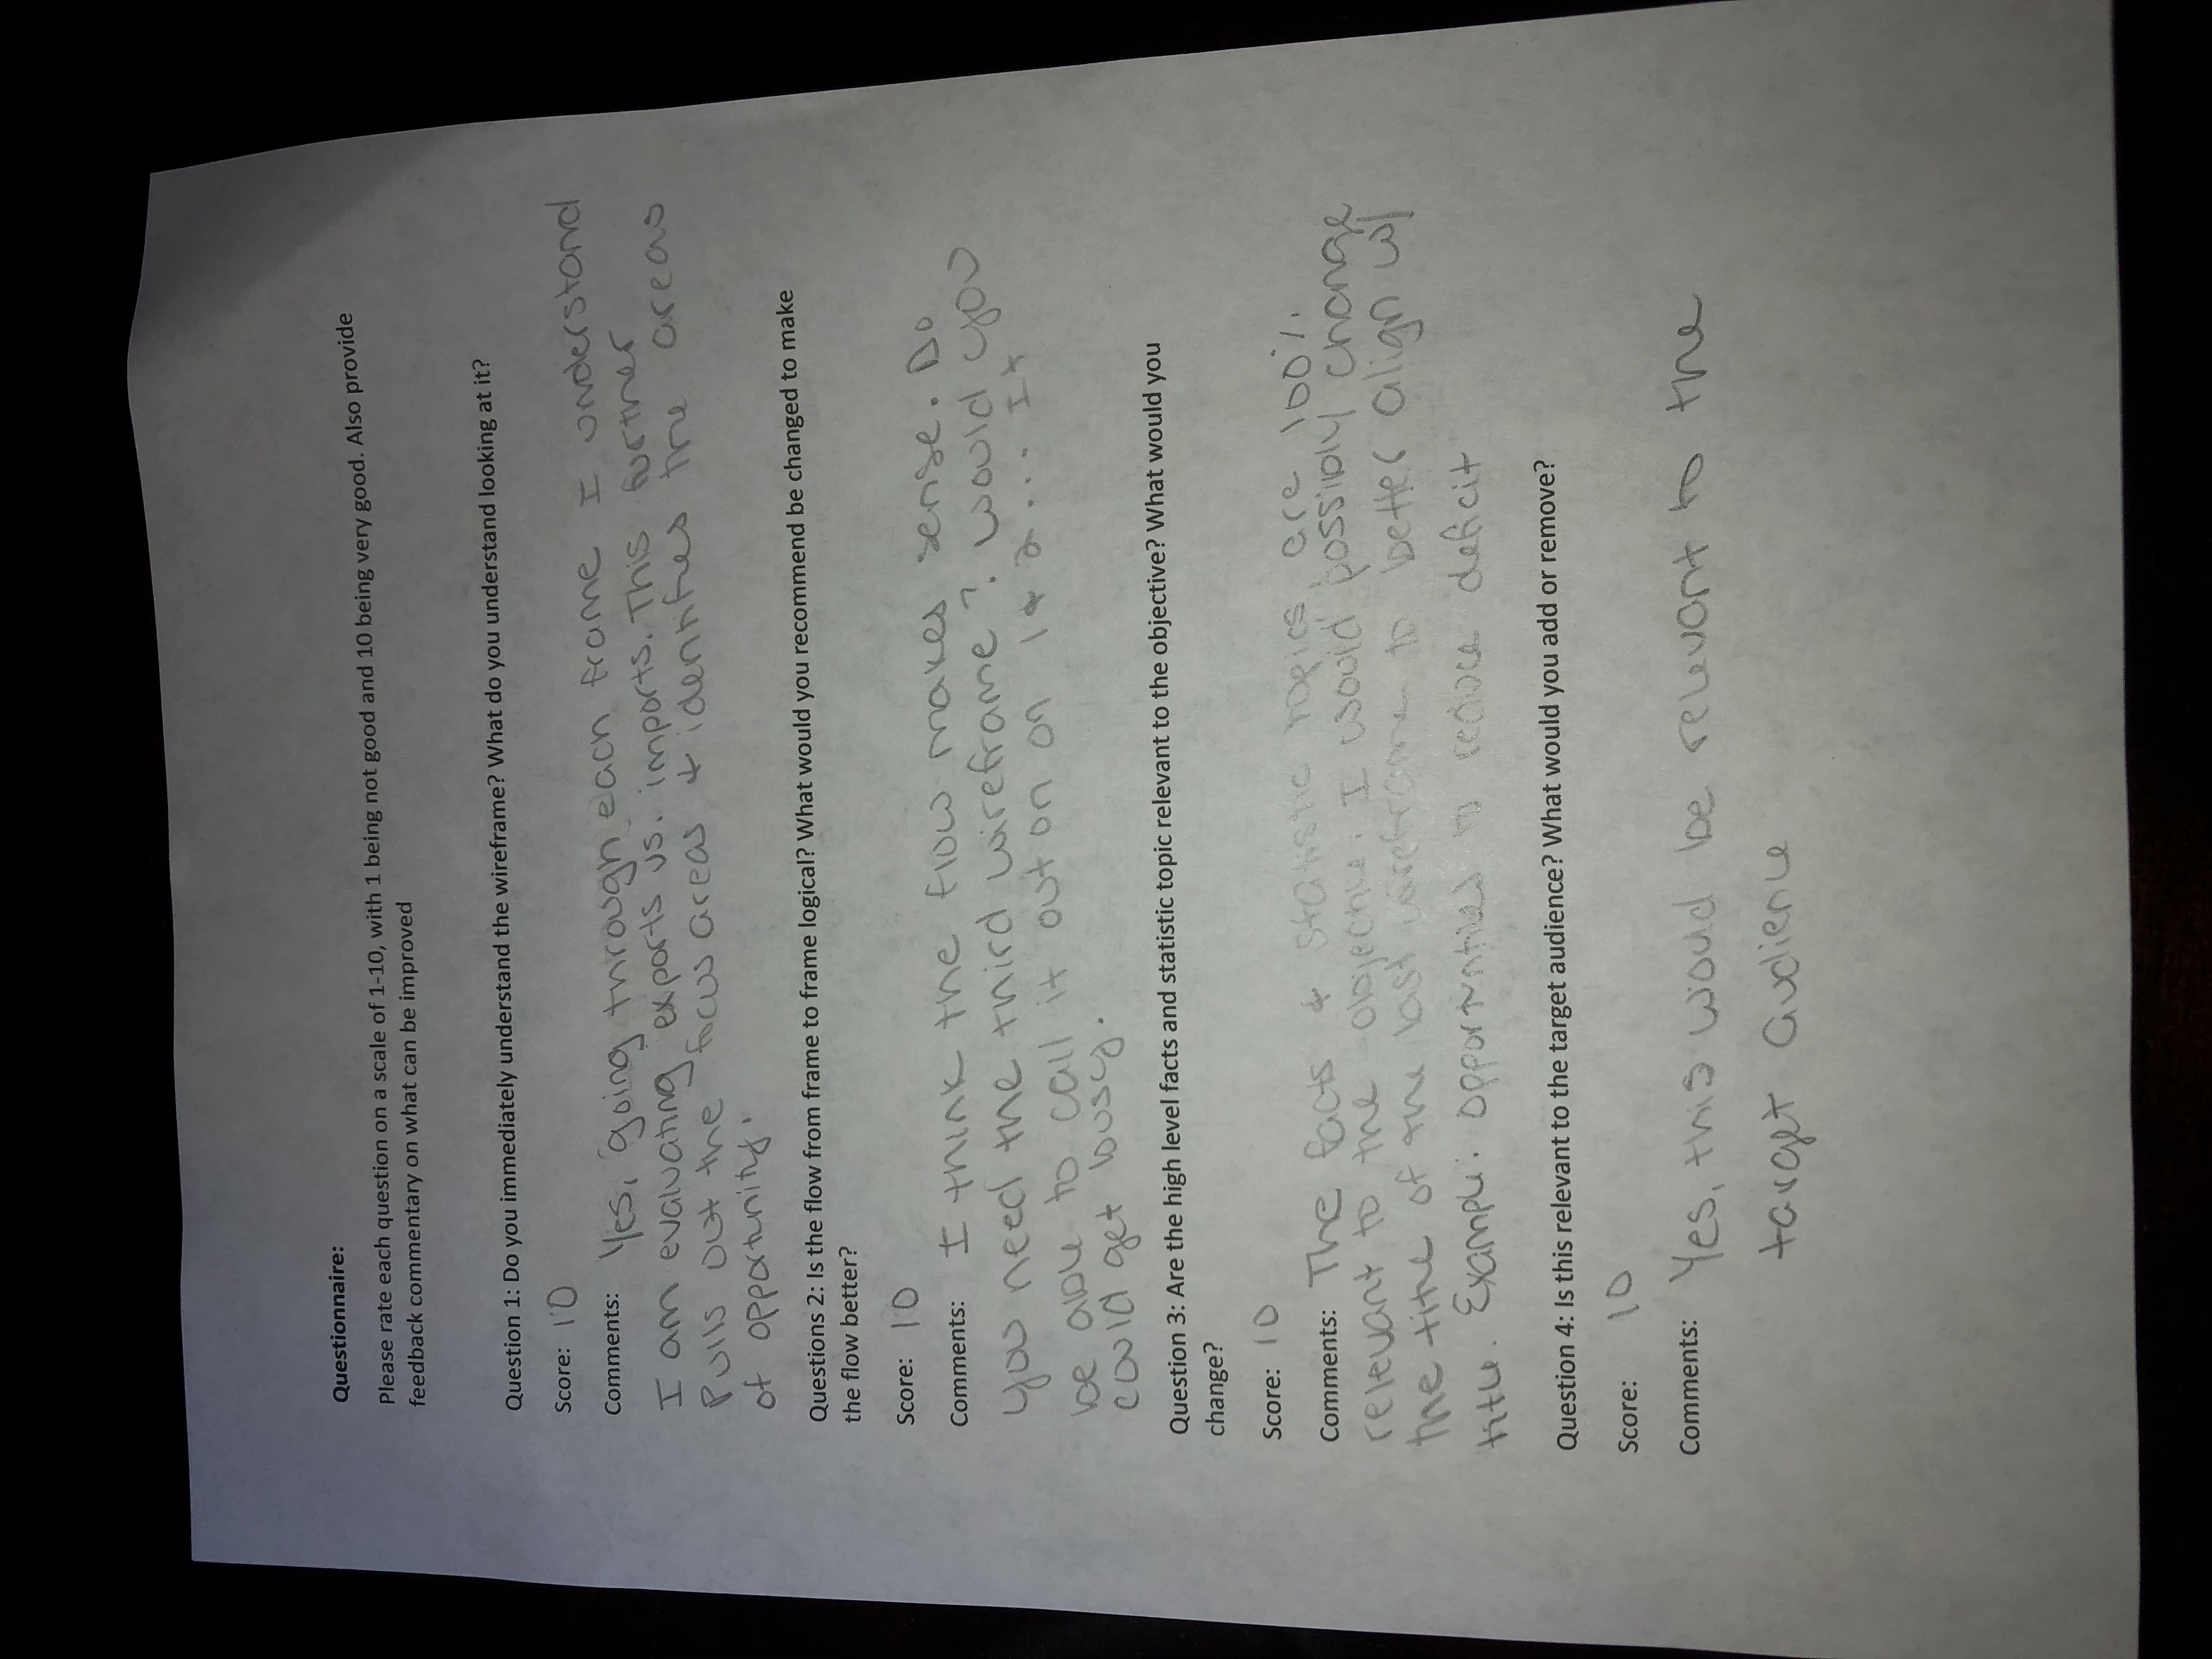 Questionnaire:
Please rate each question on a scale of 1-10, with 1 being not good and 10 being very good. Also provide
feedback commentary on what can be improved
Question 1: Do you immediately understand the wireframe? What do you understand looking at it?
Score: 10
Comments: Yes, going through each frame I understand
I am evaluating exports vs. imports. This further
Pulls out the focus areas & identifies the areas
of opportunity.
Questions 2: Is the flow from frame to frame logical? What would you recommend be changed to make
the flow better?
Score: 10
Comments: I think the flow makes sense. Do
you need the third wireframe? Would you
be able to call it out on on 1 & 2... It
could get busy.
Question 3: Are the high level facts and statistic topic relevant to the objective? What would you
change?
Score: 10
Comments: The facts & statistic topics, are 100%
relevant to the objective. I would possibly change
the title of the last wireframe to better align w/
title. Example: opportunities to reduce deficit
Question 4: Is this relevant to the target audience? What would you add or remove?
Score: 10
Comments: Yes, this would be relevant to the
target audience